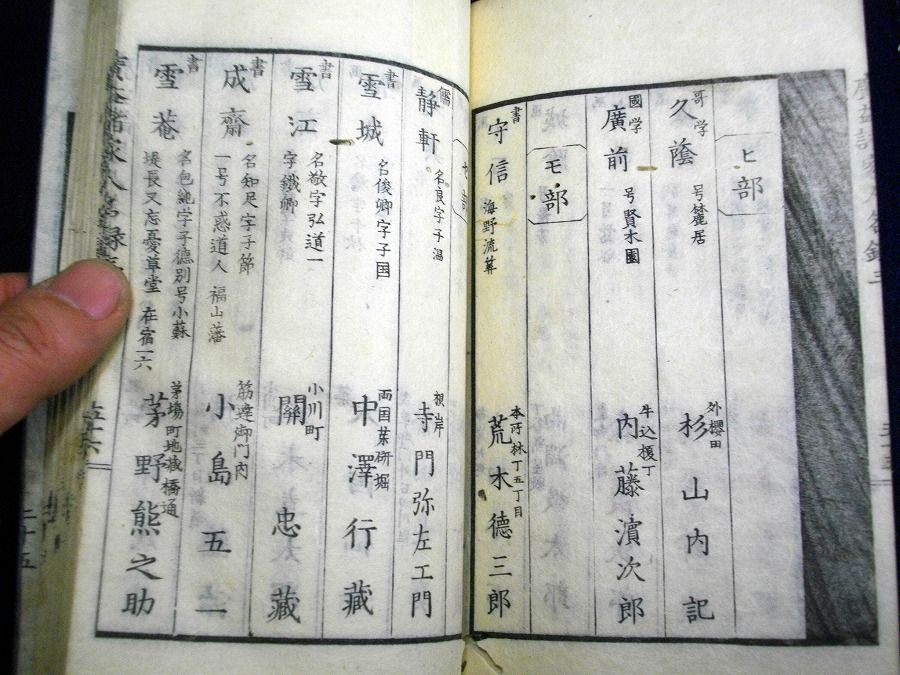 ヒ部
哥学
久蔭
号麓居
外櫻田
杉山内記
國学
廣前
号賢木園
牛込榎丁
内藤濱次郎
モ部
書
守信
海野流葊
本所林丁五丁目
荒木德三郎
儒
静軒
名良字子温
根岸
寺門弥左エ門
書
雪城
名俊卿字子国
両国薬研堀
中澤行藏
書
雪江
名敬字弘道一
字鐵卿
小川町
關忠藏
書
成齋
名知足字子節
一号不惑道人 福山藩
筋違御門内
小島五一
書
雪菴
名包絶字子德別号小蘇
堤長又忘憂草堂 在宿一六
茅場町地蔵橋通
茅野熊之助
二十五